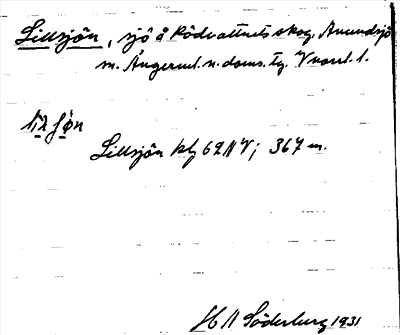 Lillsjön, sjö å Rödvattnets skog, Anundsjö
sn. Ångerml. n. doms. tg. Vnorrl. l.
Lillsjön kbl 62 NV; 367 m.
H A Söderberg 1931